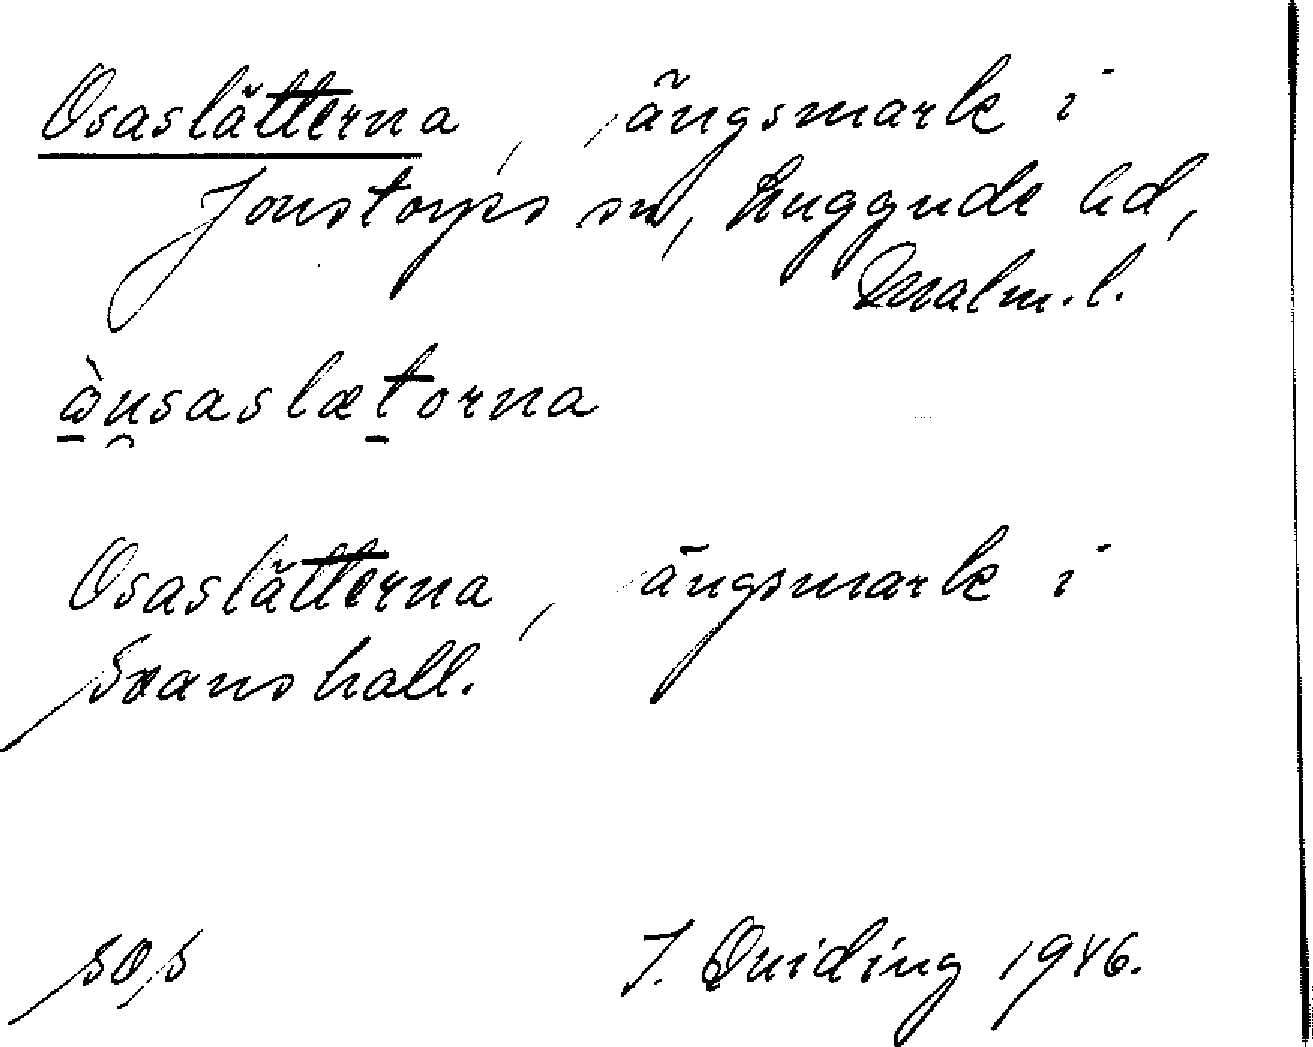 Osaslätterna, ängsmark i
Jonstorps sn, Luggude hd,
Malm. l.
ὼu̯saslætorna
Osaslätterna, ängsmark i
Svanshall.
J. Quiding 1946.